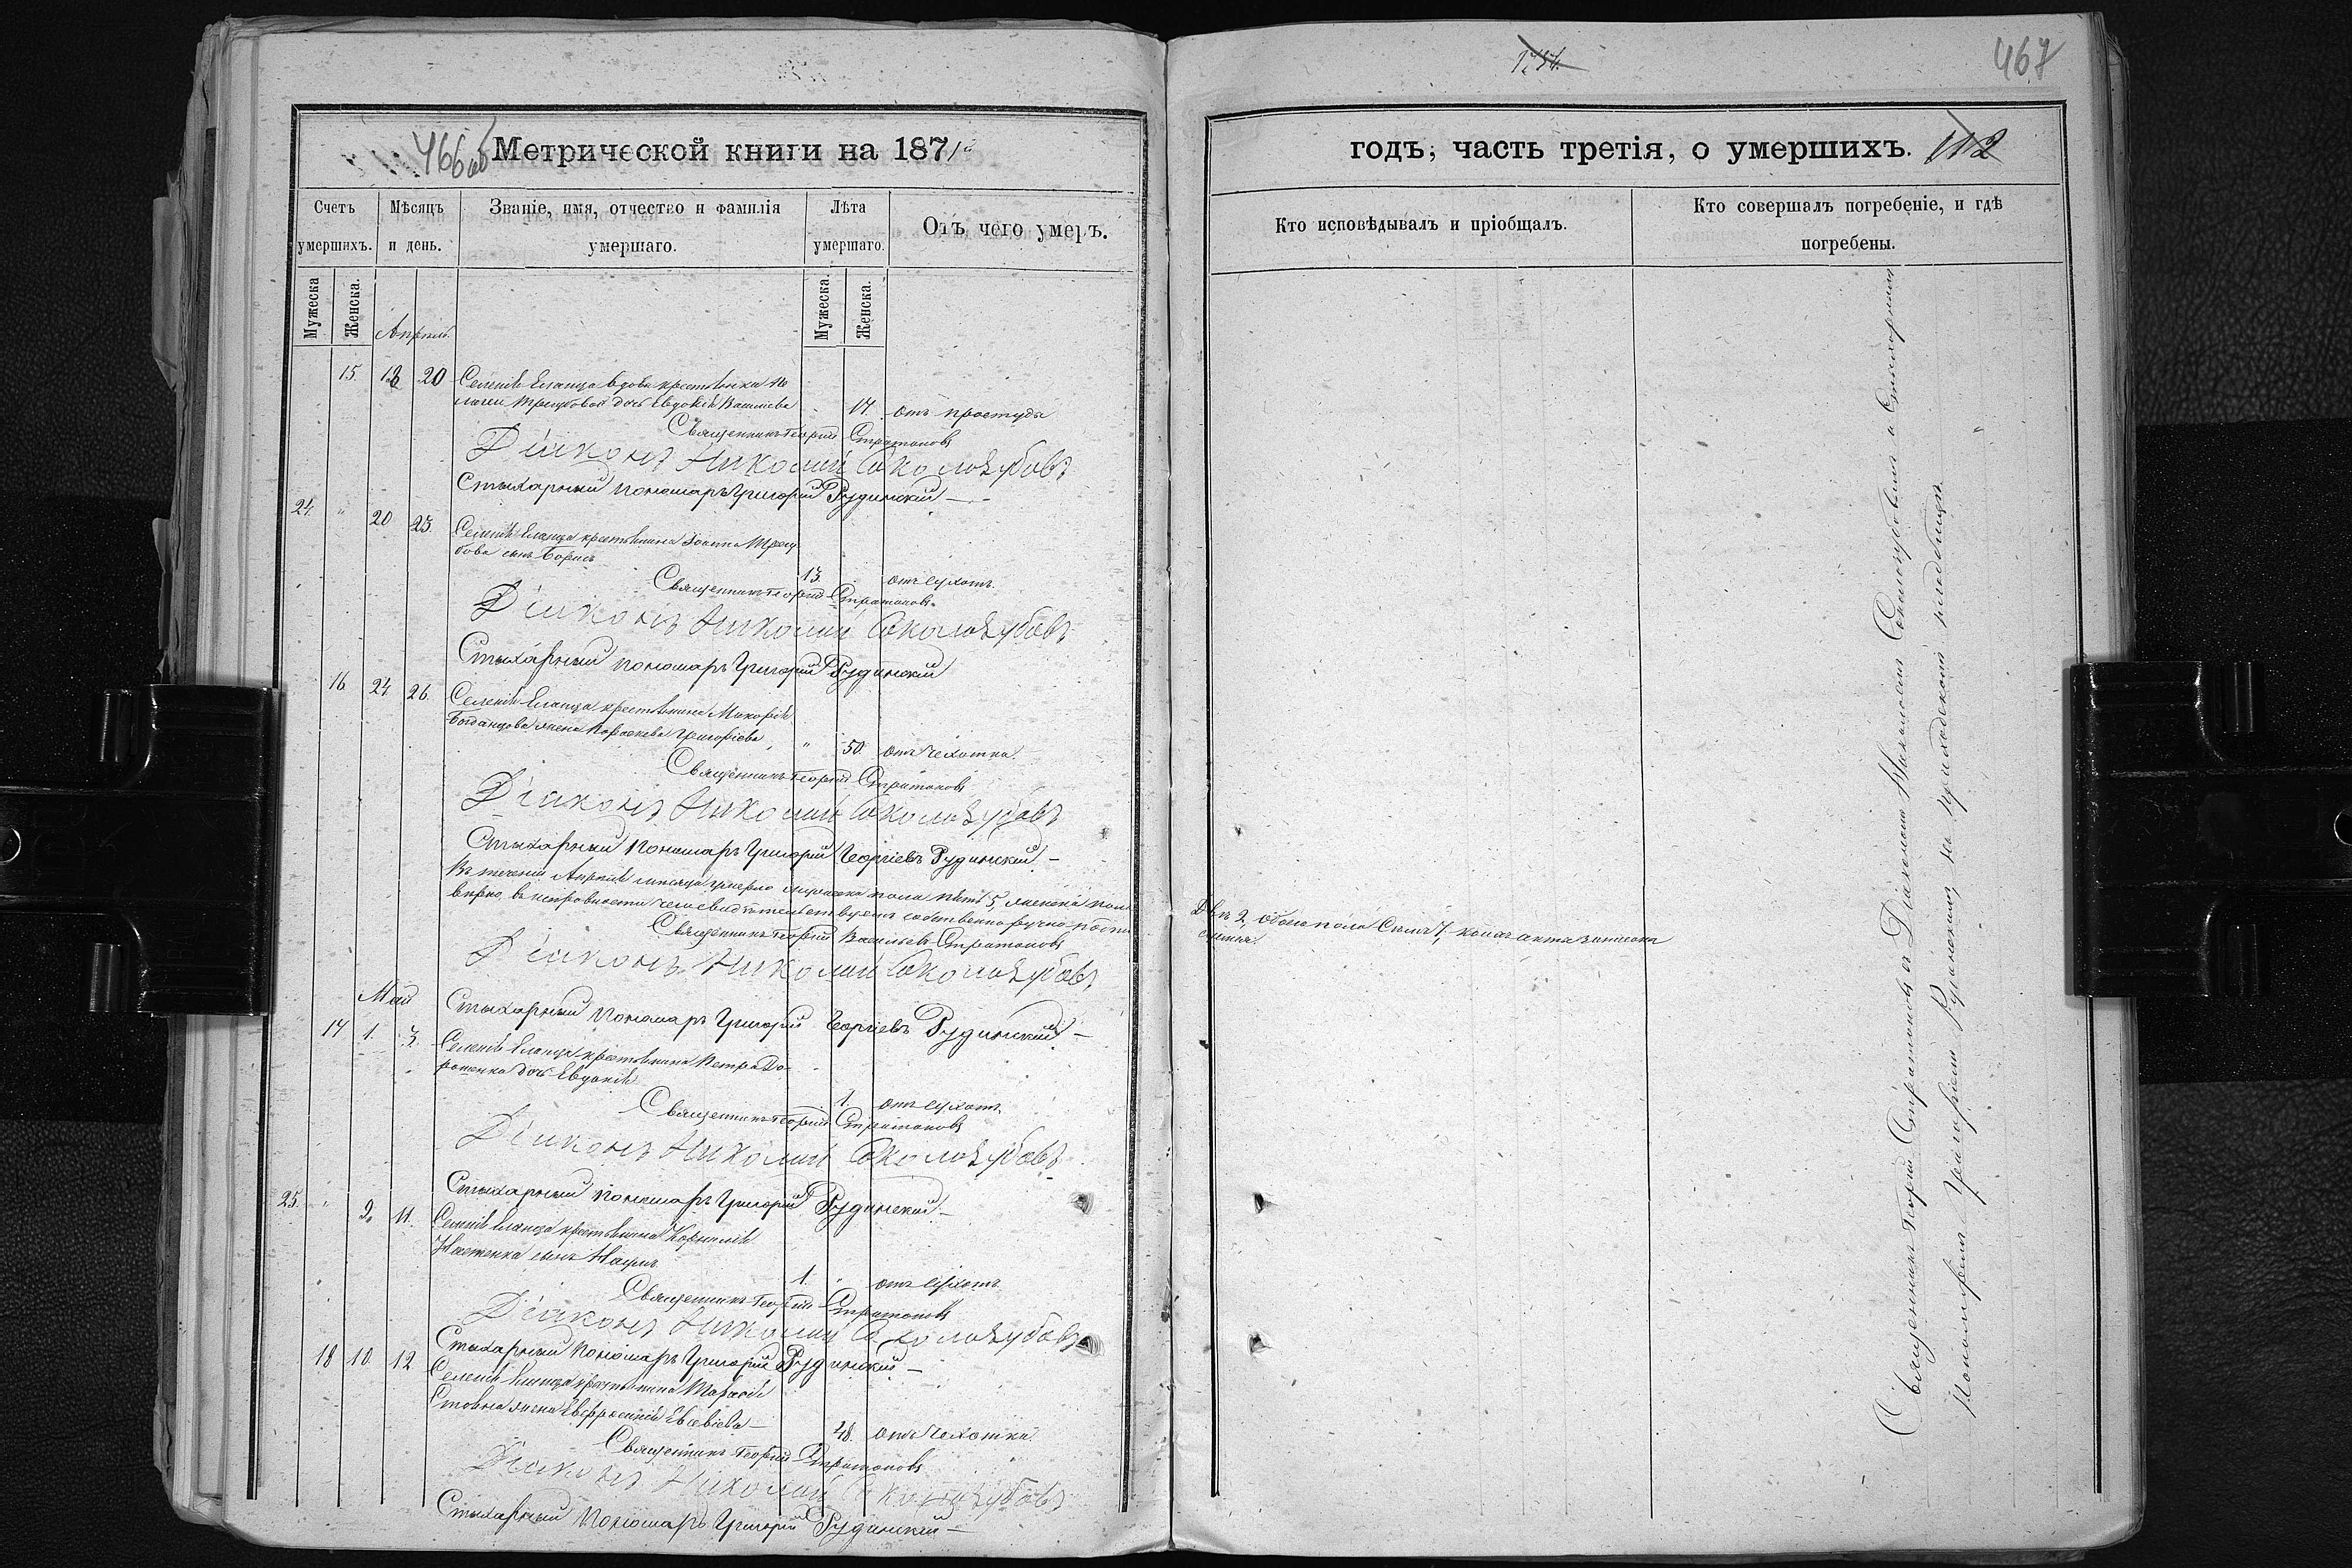 466об
Метрической книги на 1871й
Счетъ умершихъ.
Мѣсяцъ и день.
Званіе, имя, отчество и фамилія умершаго.
Лѣта умершаго.
Отъ чего умеръ.
Мужеска
Женска.
Мужеска.
Женска.
Апрель
15. 18 20 Селенія Еланца вдова крестьянка
дочь Евдокія 17. отъ простуды
Священникъ Георгій Стратоновъ
Діаконъ Николай Соколозубовъ
Стихарный Пономарь Григорій Рудинскій
24. " 20 23. Селенія Еланца крестьянина Іоанна
сынъ Борисъ
13. отъ сухотъ.
Священникъ Георгій Стратоновъ
Діаконъ Николай Соколозубовъ
Стихарный Пономарь Григорій Рудинскій
16. 24. 26. Селенія Еланца крестьянина
жена Параскева Григоріева " 50. отъ чахотки.
Священникъ Георгій Стратоновъ
Діаконъ Николай Соколозубовъ
Стихарный Пономарь Григорій Георгіевъ Рудинскій
Въ теченіи Апреля месяца умерло мужеска пола пять 5, женска пола
верно, въ исправности чего свидѣтельствуемъ собственноручно
Священникъ Георгій Васильевъ Стратоновъ
Діаконъ Николай Соколозубовъ
Стихарный Пономарь Григорій Георгіевъ Рудинскій
Май
17 1. 3. Селенія Еланца крестьянина Петра До-
рошенка дочь Евдокія
1. отъ сухотъ.
Священникъ Георгій Стратоновъ
Діаконъ Николай Соколозубовъ
Стихарный Пономарь Григорій Рудинскій
25. " 9. 11. Селенія Еланца крестьянина Корнилія
сынъ Наумъ
1. " отъ сухотъ.
Священникъ Георгій Стратоновъ
Діаконъ Николай Соколозубовъ
Стихарный Пономарь Григорій Рудинскій
18 10 12 Селенія Еланца крестьянина Тарасія
жена Евфросинія Евсевіева
48. отъ чахотки.
Священникъ Георгій Стратоновъ
Діаконъ Николай Соколозубовъ
Стихарный Пономарь Григорій Рудинскій
467
годъ, часть третія, о умершихъ. 112
Кто исповѣдывалъ и пріобщалъ.
Кто совершалъ погребеніе, и гдѣ погребены.
Двѣ 2, обоего пола семь 7, коихъ акта
Священникъ Георгій Стратоновъ съ Діакономъ Николаемъ Соколозубовымъ и Стихарнымъ
Пономаремъ Григоріемъ Рудинскимъ на приходскомъ кладбищѣ.